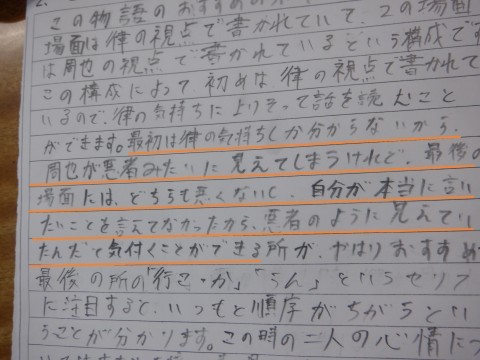 この物語のおすすめの
場面は律の視点で書かれていて、2の場面
は周也の視点で書かれているという構成です
この構成によって初めは律の視点で書かれて
いるので、律の気持ちによりそって話を読むこと
ができます。最初は律の気持ちしか分からないから、
周也が悪者みたいに見えてしまうけれど、最後の
場面には、どちらも悪くないし、自分が本当に言い
たいことを言えてなかったから、悪者のように見えてい
たんだと気付くことができる所が、やはりおすすめ
最後の所の「行こっか」「うん」というセリフ
に注目すると、いつもと順序がちがうとい
うことが分かります。この時の二人の心情につ